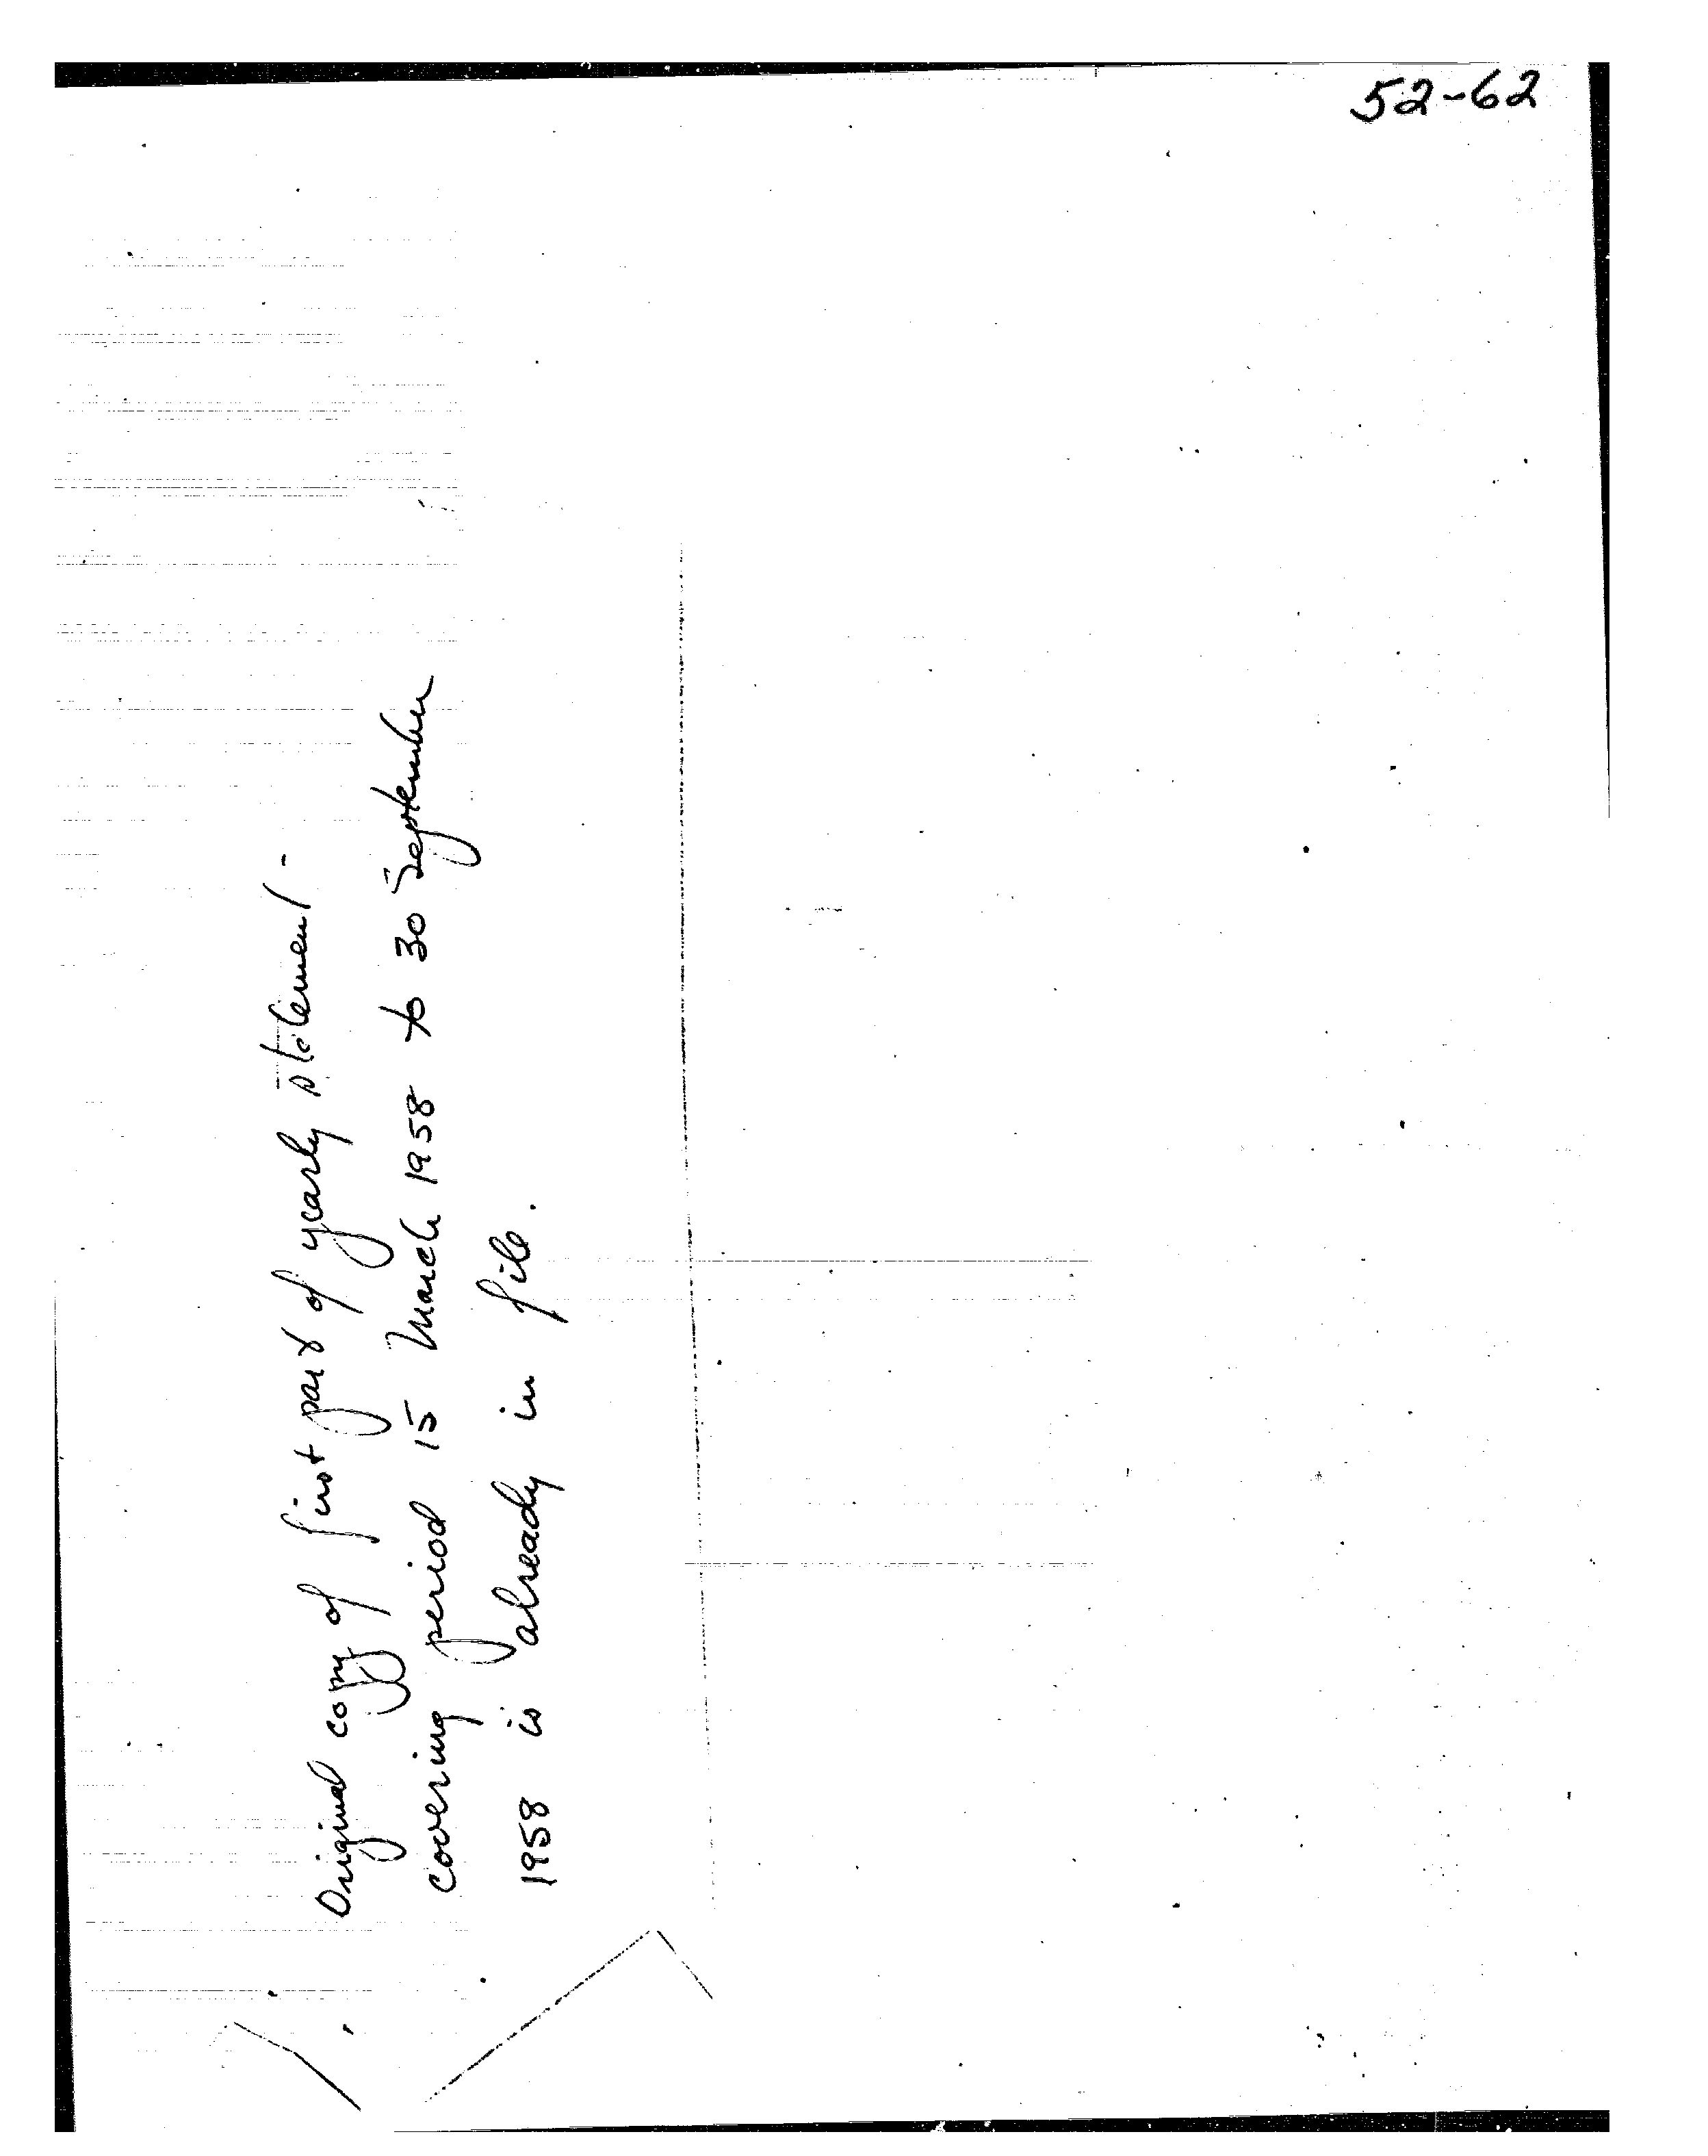 52-62
Original copy of first part of yearly statement -
covering period 15 March 1958 to 30 September
1958 is already in file.